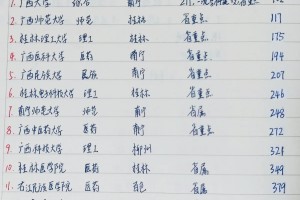 1. 广西大学 综合 南宁 211、
2. 广西师范大学 师范 桂林 省重点 117
3. 桂林理工大学 理工 桂林 省重点 177
4. 广西医科大学 医药 南宁 省重点 194
5. 广西民族大学 民族 南宁 省重点 207
6. 桂林电子科技大学 理工 桂林 省重点 246
7. 南宁师范大学 师范 南宁 省属 248
8. 广西中医药大学 医药 南宁 省重点 272
9. 广西科技大学 理工 柳州 321
10 桂林医学院 医药 桂林 省属 349
11. 右江民族医学院 医药 百色 省属 379